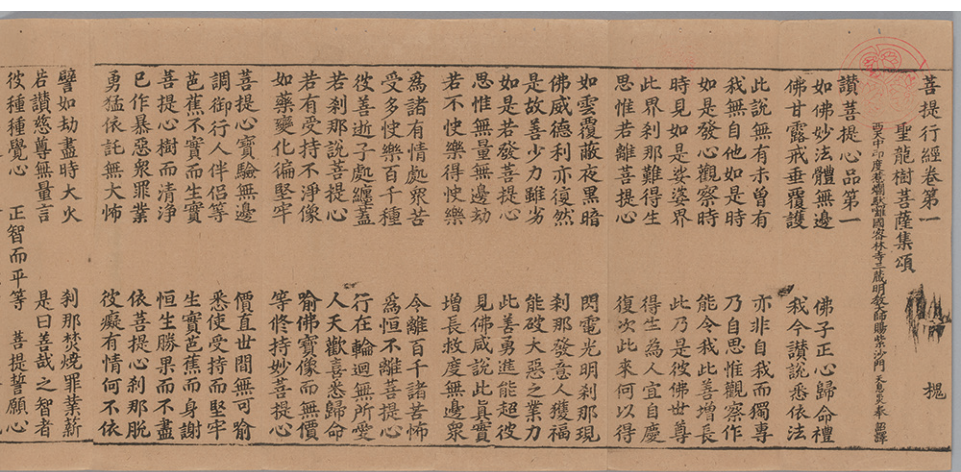 菩提行經卷第一 槐
聖龍樹菩薩集頌
西天中印度惹爛駄囉國密林寺三藏明教大師賜紫沙門 天息災奉 詔譯
讚菩提心品第一
如佛妙法體無邊 佛子正心歸命禮
佛甘露戒垂覆護 我今讚說悉依法
此說無有未曾有 亦非自我而獨專
我無自他如是時 乃自思惟觀察作
如是發心觀察時 能令我此善增長
時見如是娑婆界 此乃是彼佛世尊
此界刹那難得生 得生為人宜自慶
思惟若離菩提心 復次此來何以得
如雲覆蔽夜黑暗 閃電光明刹那現
佛威德利亦復然 刹那發意人獲福
是故善少力雖劣 能破大惡之業力
如是若發菩提心 此善勇進能超彼
思惟無量無邊劫 見佛咸說此真實
若不快樂得快樂 增長救度無邊衆
為諸有情處衆苦 令離百千諸苦怖
受多快樂百千種 為恒不離菩提心
彼善逝子處纏蓋 行在輪迴無所愛
若刹那說菩提心 人天歡喜悉歸命
若有受持不淨像 喻佛寶像而無價
如藥變化徧堅牢 等修持妙菩提心
菩提心寶驗無邊 價直世間無可喻
調御行人伴侶等 悉使受持而堅牢
芭蕉不實而生實 生實芭蕉而身謝
菩提心樹而清淨 恒生勝果而不盡
已作暴惡衆罪業 依菩提心刹那脫
勇猛依託無大怖 彼癡有情何不依
譬如劫盡時大火 刹那焚燒罪業薪
若讚慈尊無量言 是曰善哉之智者
彼種種覺心 正智而平等 菩提誓願心